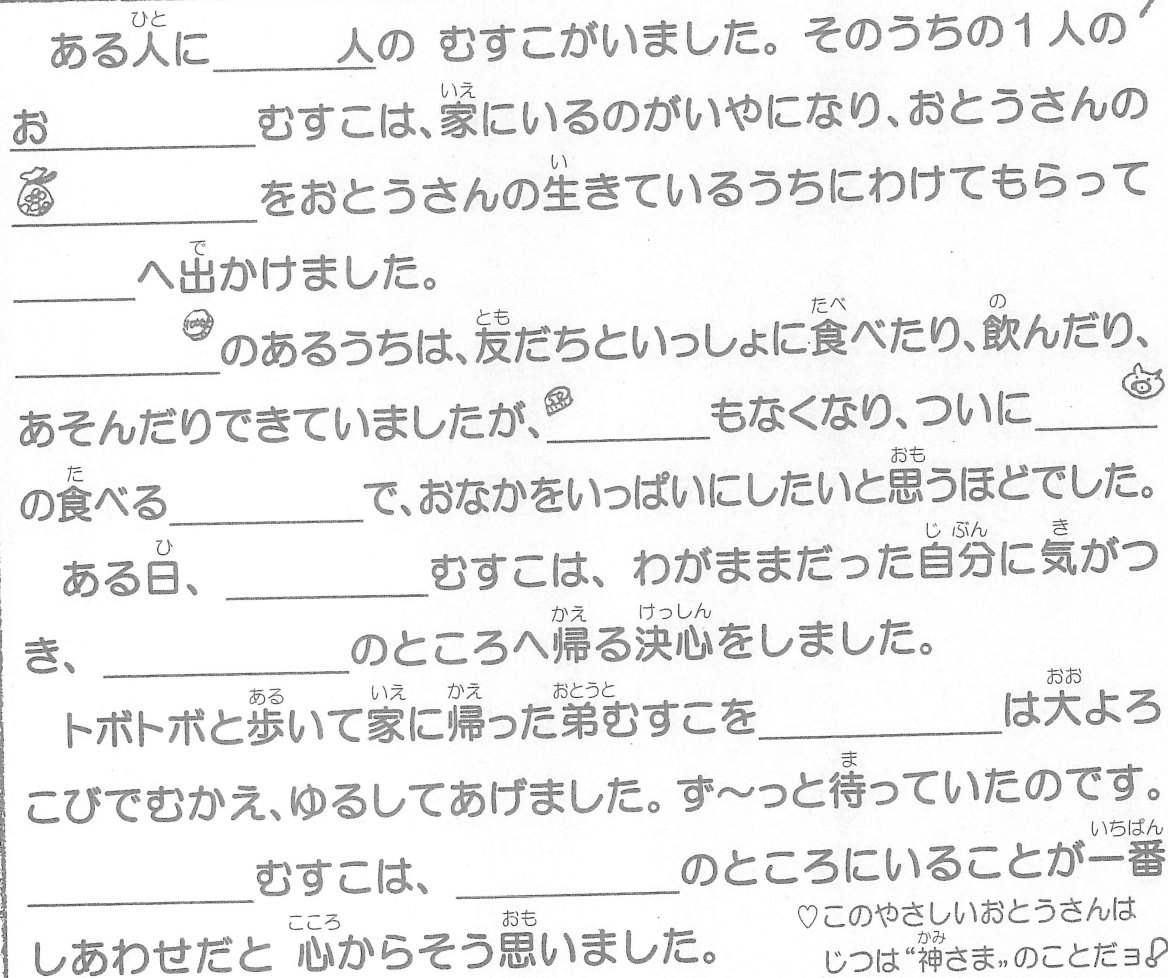 ある人に______人の むすこがいました。そのうちの1人の
お__________むすこは、家にいるのがいやになり、おとうさんの
__________をおとうさんの生きているうちにわけてもらって
______へ出かけました。
__________のあるうちは、友だちといっしょに食べたり、飲んだり、
あそんだりできていましたが、________もなくなり、ついに______
の食べる__________で、おなかをいっぱいにしたいと思うほどでした。
ある日、__________むすこは、わがままだった自分に気がつ
き、____________のところへ帰る決心をしました。
トボトボと歩いて家に帰った弟むすこを____________は大よろ
こびでむかえ、ゆるしてあげました。ず～っと待っていたのです。
____________むすこは、____________のところにいることが一番
しあわせだと 心からそう思いました。
♡このやさしいおとうさんは
じつは“神さま„のことだヨ